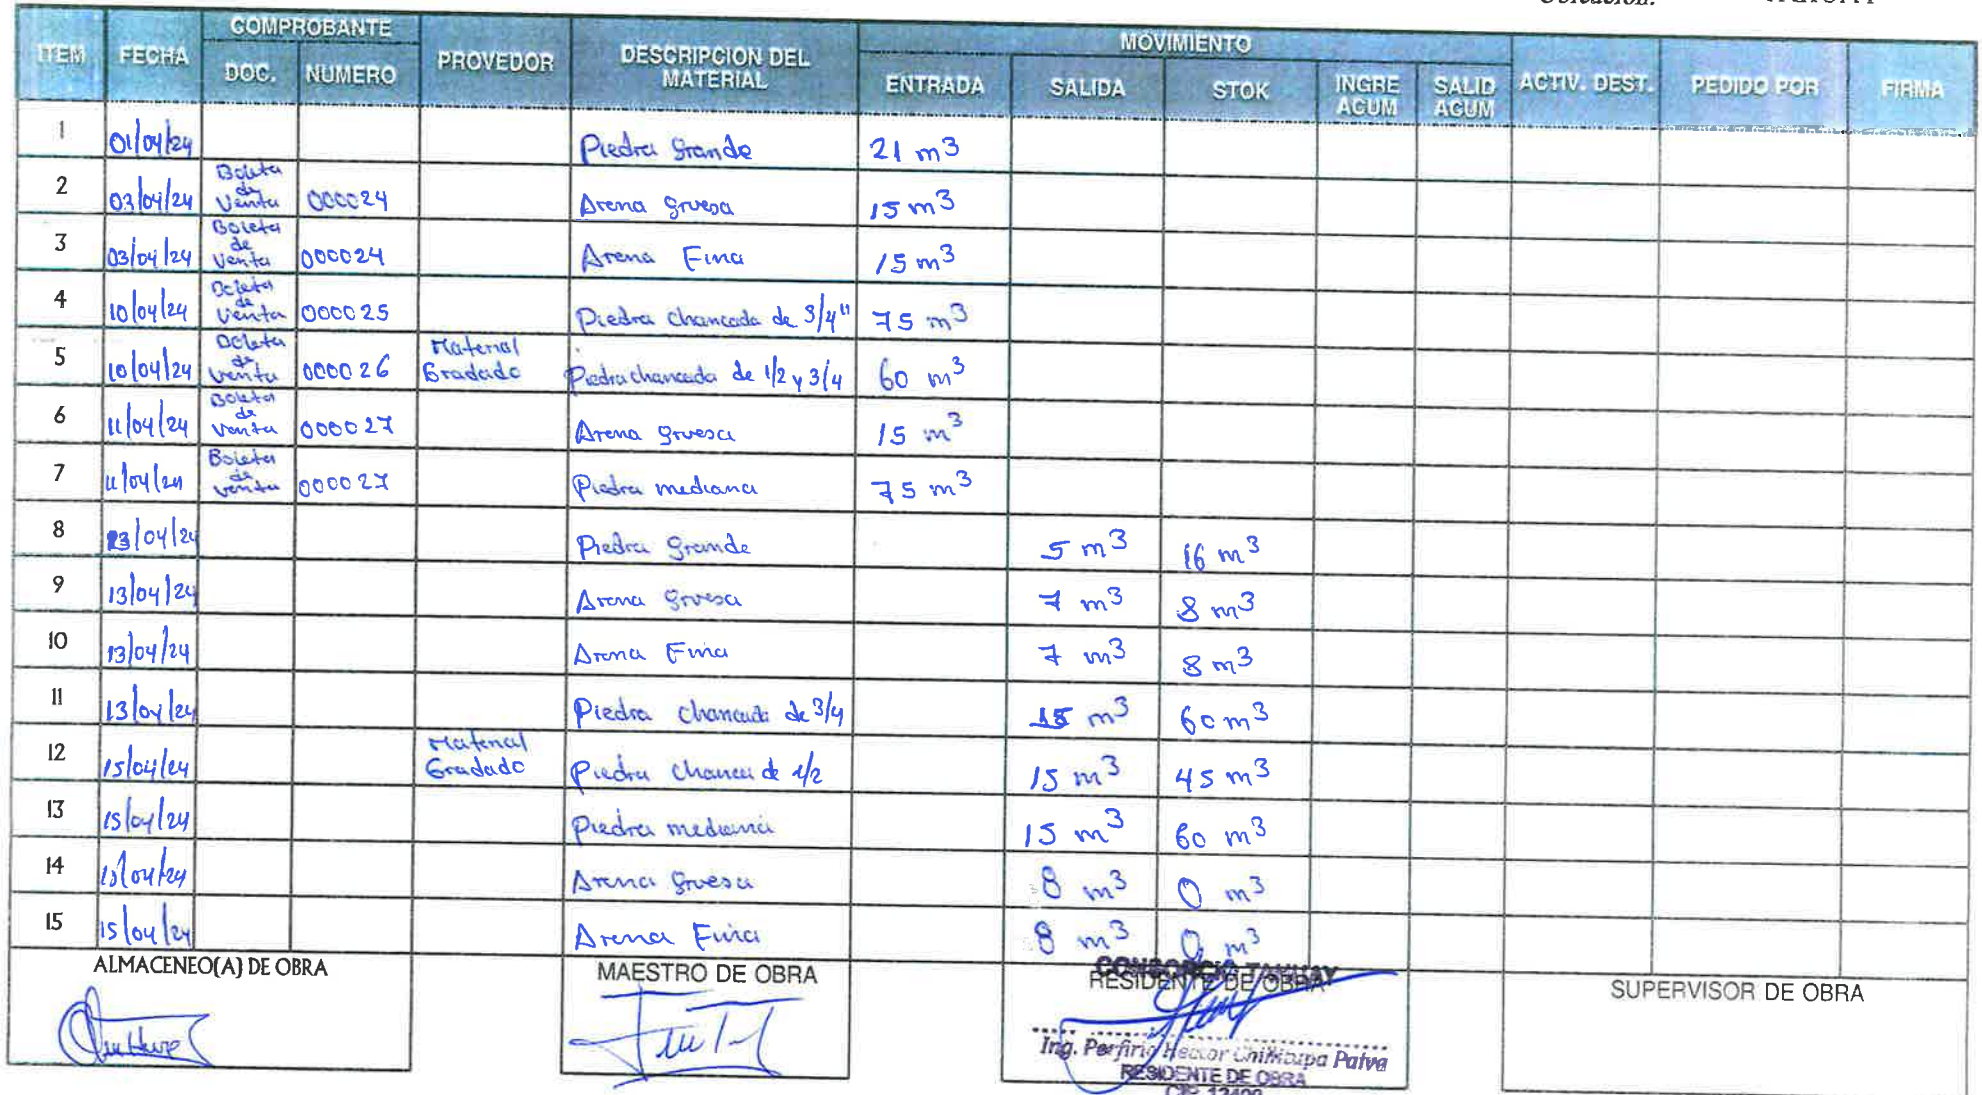 Ubicación:
ITEM FECHA COMPROBANTE DOC. NUMERO PROVEDOR DESCRIPCION DEL MATERIAL MOVIMIENTO ENTRADA SALIDA STOK INGRE AGUM SALID AGUM ACTIV. DEST. PEDIDO POR FIRMA
1 01/04/24 Piedra Grande 21 m3
2 03/04/24 Boleta de Venta 000024 Arena gruesa 15 m3
3 03/04/24 Boleta de Venta 000024 Arena Fina 15 m3
4 10/04/24 Boleta de Venta 000025 Piedra chancada de 3/4" 75 m3
5 10/04/24 Boleta de Venta 000026 Material Gradado Piedra chancada de 1/2 y 3/4 60 m3
6 11/04/24 Boleta de Venta 000027 Arena gruesa 15 m3
7 11/04/24 Boleta de Venta 000027 Piedra mediana 75 m3
8 13/04/24 Piedra Grande 5 m3 16 m3
9 13/04/24 Arena Gruesa 7 m3 8 m3
10 13/04/24 Arena Fina 7 m3 8 m3
11 13/04/24 Piedra chancada de 3/4 15 m3 60 m3
12 15/04/24 Material Gradado Piedra chanca de 1/2 15 m3 45 m3
13 15/04/24 Piedra mediana 15 m3 60 m3
14 15/04/24 Arena Gruesa 8 m3 0 m3
15 15/04/24 Arena Fina 8 m3 0 m3
ALMACENEO(A) DE OBRA
MAESTRO DE OBRA
CONSORCIO TAHUAY
RESIDENTE DE OBRA
Ing. Porfirio Hector Chillicupa Palva
RESIDENTE DE OBRA
SUPERVISOR DE OBRA